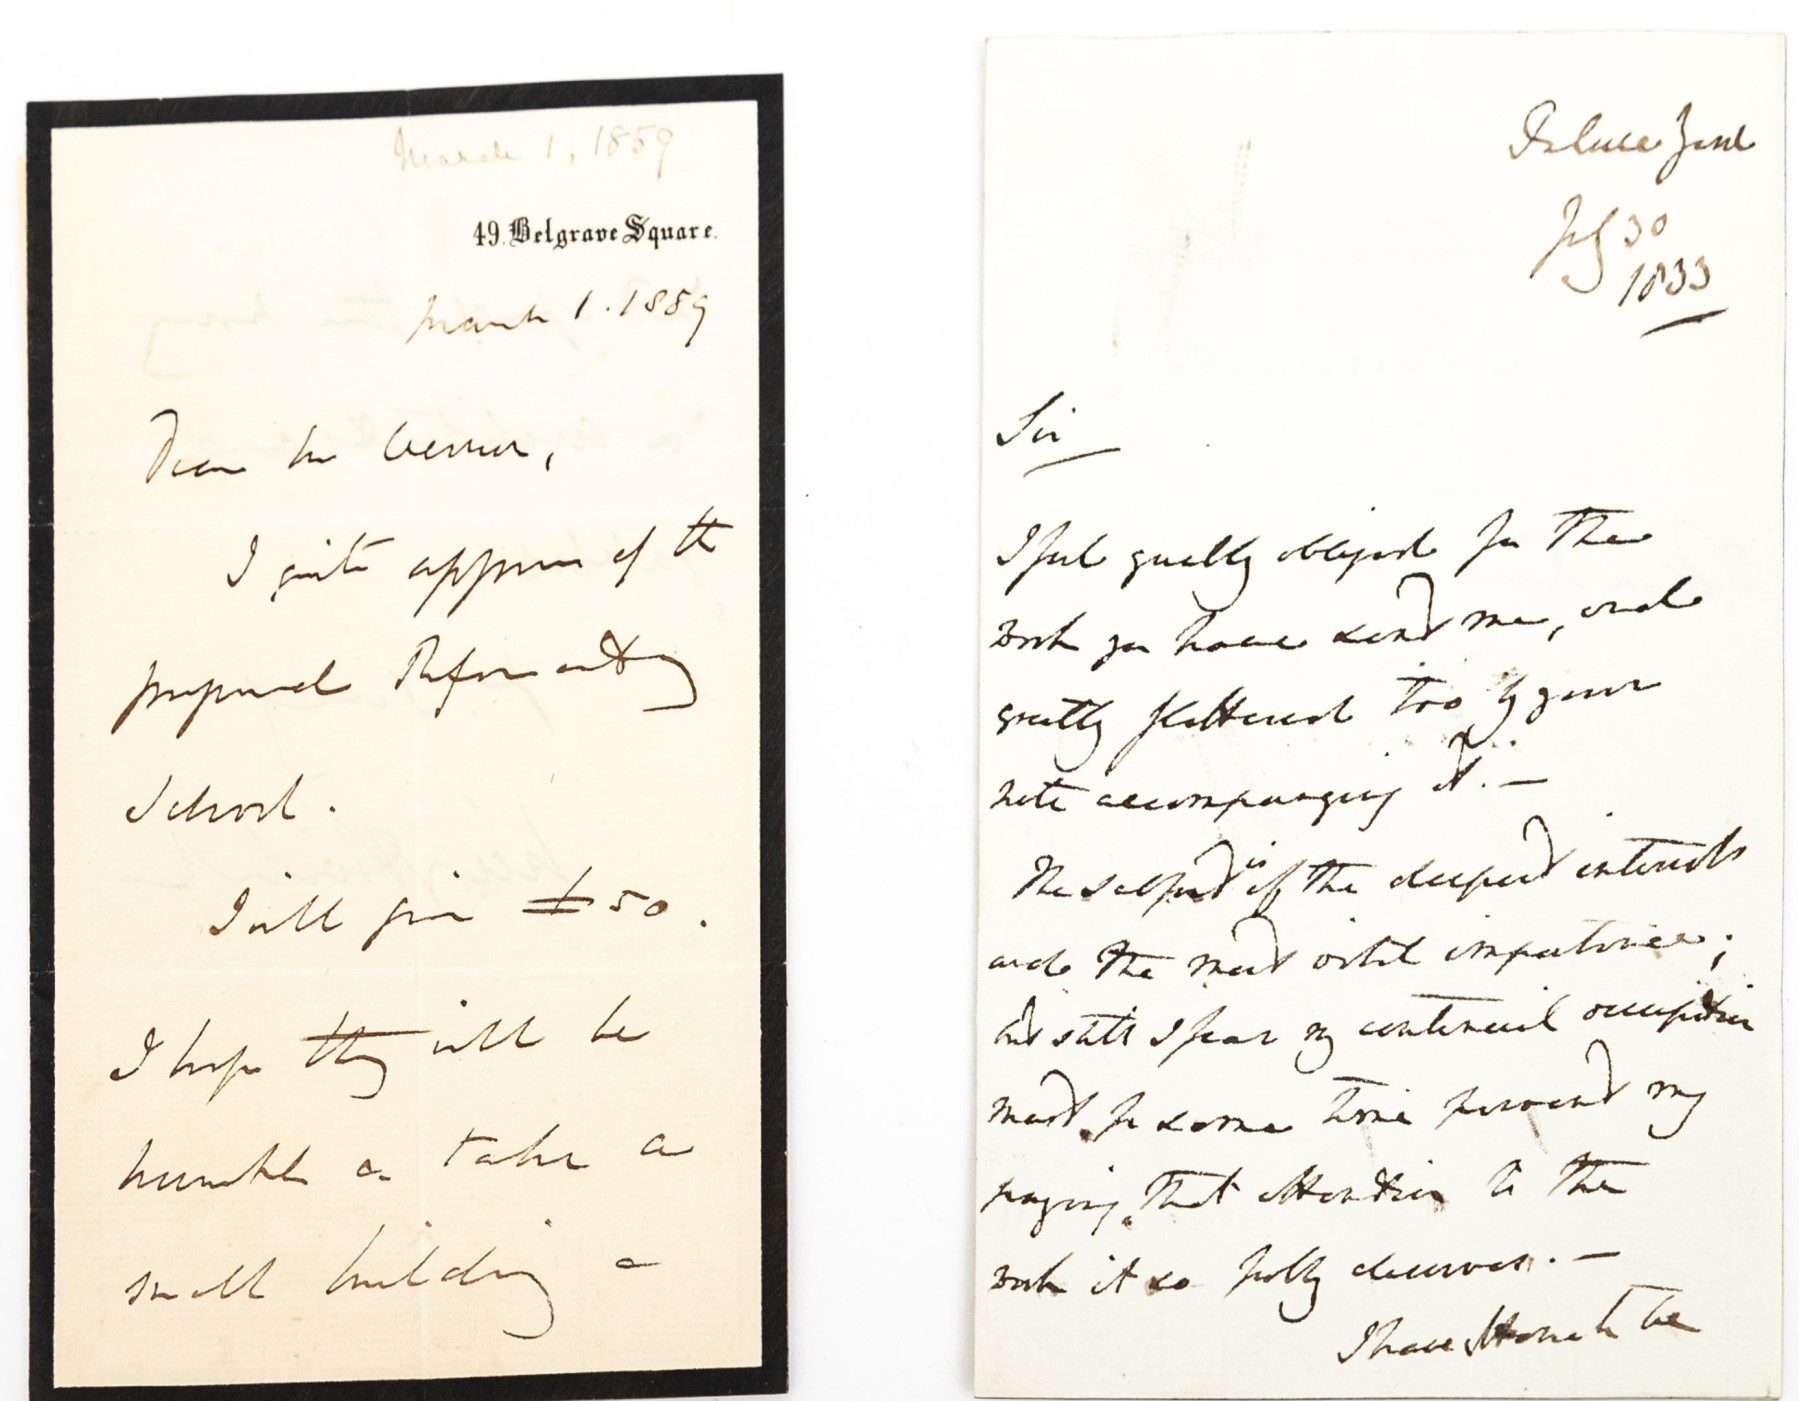 March 1, 1859
49. Belgrave Square.
March 1. 1859
Dear Mr
I quite approve of the
proposed Reformatory
School.
I will give £50.
I hope they will be
humble & take a
small building &
Palace Yard
July 30
1833
Sir
I feel greatly obliged for the
work you have send me, and
greatly flattered too by your
note accompanying it. —
The subject is of the deepest interest
and the most vital importance;
but still I fear my continual occupation
must for some time prevent my
paying that attention to the
work it so fully deserves. —
I have Honor to be